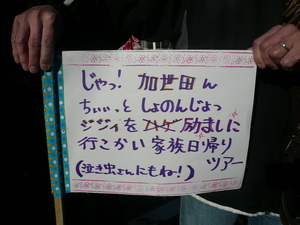 じゃっ! 加世田ん
ちぃぃっと しょのんじょっ
ジジイを ムゲ 励ましに
行こかい 家族日帰り
ツアー
(泣き虫さんにもね!)